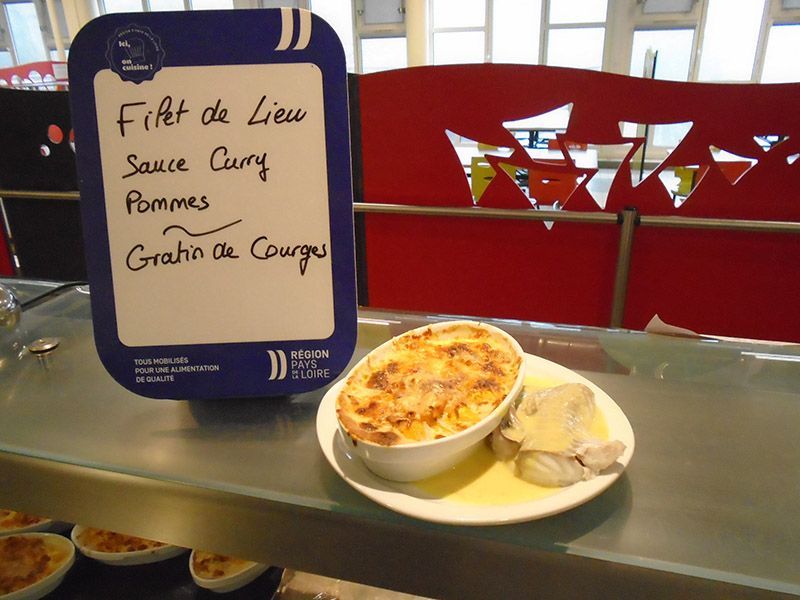 Ici,
on
cuisine !
Filet de Lieu
Sauce Curry
Pommes
Gratin de Courges
TOUS MOBILISÉS
POUR UNE ALIMENTATION
DE QUALITÉ
RÉGION
PAYS
DE LA LOIRE